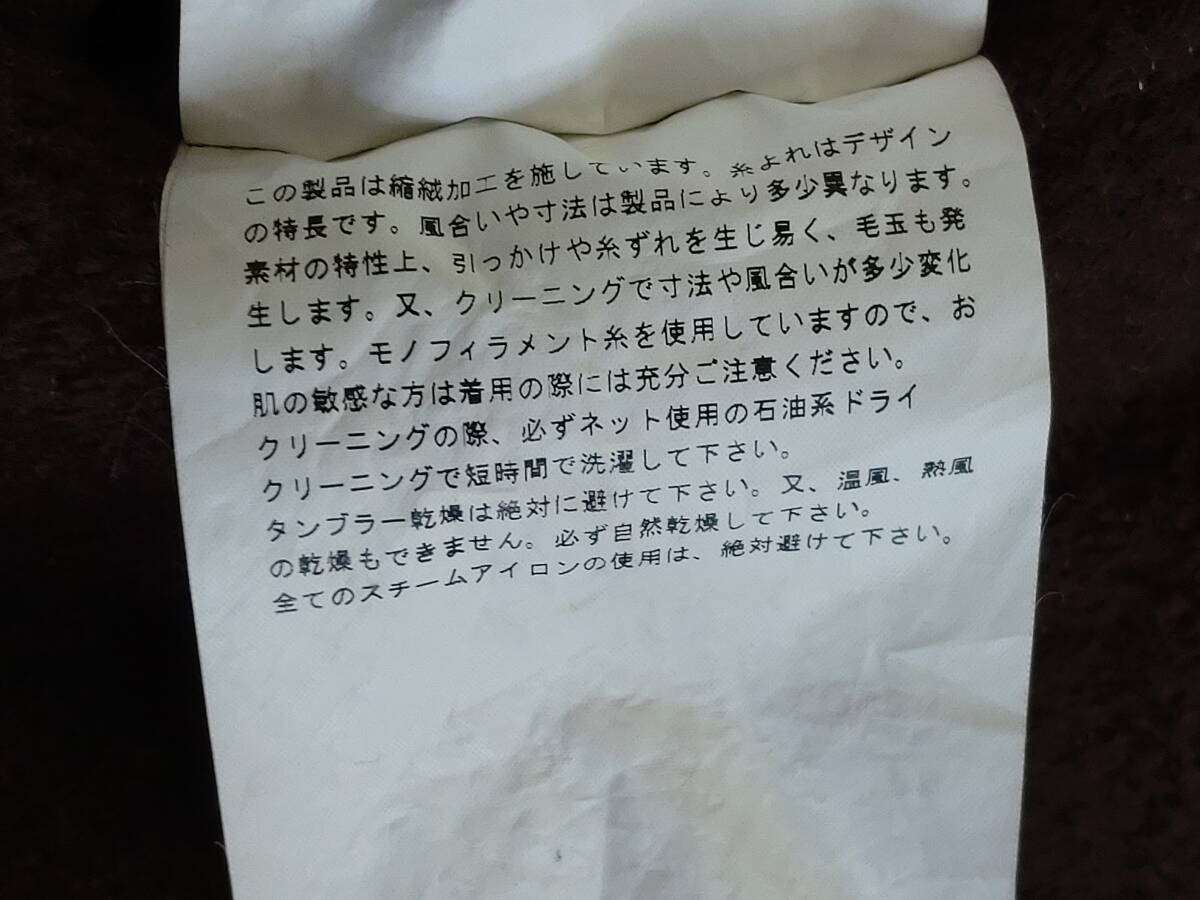 この製品は縮絨加工を施しています。糸よれはデザイン
の特長です。風合いや寸法は製品により多少異なります。
素材の特性上、引っかけや糸ずれを生じ易く、毛玉も発
生します。又、クリーニングで寸法や風合いが多少変化
します。モノフィラメント糸を使用していますので、お
肌の敏感な方は着用の際には充分ご注意ください。
クリーニングの際、必ずネット使用の石油系ドライ
クリーニングで短時間で洗濯して下さい。
タンブラー乾燥は絶対に避けて下さい。又、温風、熱風
の乾燥もできません。必ず自然乾燥して下さい。
全てのスチームアイロンの使用は、絶対避けて下さい。